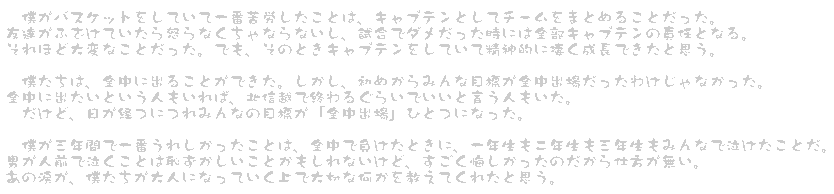 僕がバスケットをしていて一番苦労したことは、キャプテンとしてチームをまとめることだった。
友達がふざけていたら怒らなくちゃならないし、試合でダメだった時には全部キャプテンの責任となる。
それほど大変なことだった。でも、そのときキャプテンをしていて精神的に凄く成長できたと思う。
僕たちは、全中に出ることができた。しかし、初めからみんな目標が全中出場だったわけじゃなかった。
全中に出たいという人もいれば、北信越で終わるぐらいでいいと言う人もいた。
だけど、日が経つにつれみんなの目標が「全中出場」ひとつになった。
僕が三年間で一番うれしかったことは、全中で負けたときに、一年生も二年生も三年生もみんなで泣けたことだ。
男が人前で泣くことは恥ずかしいことかもしれないけど、すごく悔しかったのだから仕方が無い。
あの涙が、僕たちが大人になっていく上で大切な何かを教えてくれたと思う。